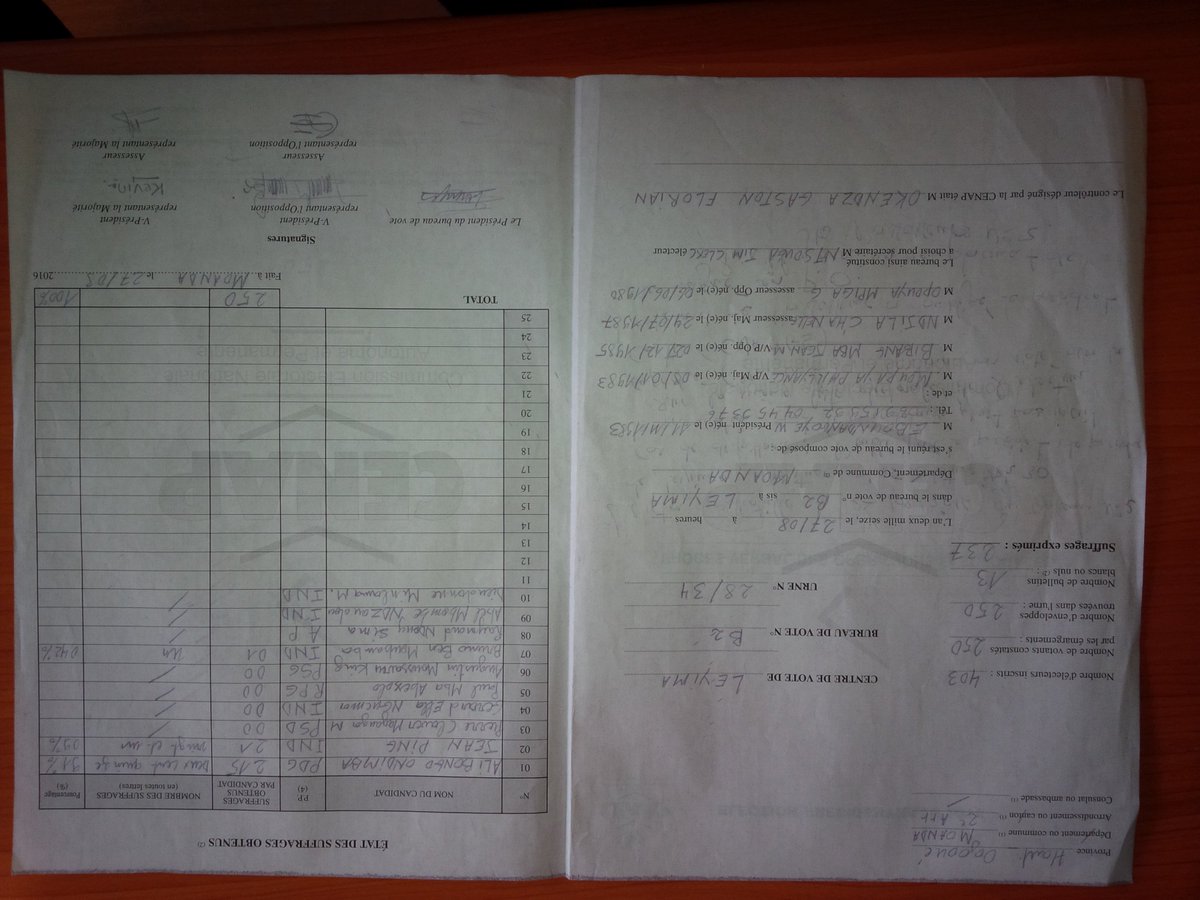 Province Haut Ogooué
Département ou commune (1) MOANDA
Arrondissement ou canton (1) 2e Arr
Consulat ou ambassade (1) /
CENTRE DE VOTE DE LEYIMA
BUREAU DE VOTE N° B2
URNE N° 28/34
Nombre d'électeurs inscrits : 403
Nombre de votants constatés
par les émargements : 250
Nombre d'enveloppes
trouvées dans l'urne : 250
Nombre de bulletins
blancs ou nuls (2) : 13
Suffrages exprimés : 237
L'an deux mille seize, le 27/08 à heures
dans le bureau de vote n° B2 sis à LEYIMA
Département, Commune de MOANDA
s'est réuni le bureau de vote composé de :
M EBOUNDANGOYE W Président né(e) le 11/11/1983
Tél. :
et de :
M PHILLYANCE V/P Maj. né(e) le 08/01/1983
M BIBANG MBA JEAN M V/P Opp. né(e) le 027/12/1985
M NDJILA CHANELLE assesseur Maj. né(e) le 24/07/1987
M OPOUYA MPIGA G assesseur Opp. né(e) le 06/06/1980
Le bureau ainsi constitué
a choisi pour secrétaire M NTSOUGA JIM CLERC électeur
Le contrôleur désigné par la CENAP était M OKENDZA GASTON FLORIAN
ÉTAT DES SUFFRAGES OBTENUS (2)
N° NOM DU CANDIDAT PP (4) SUFFRAGES OBTENUS PAR CANDIDAT NOMBRE DES SUFFRAGES (en toutes lettres) Pourcentage (%)
01 ALI BONGO ONDIMBA PDG 215 Deux cent quinze 91%
02 JEAN PING IND 21 vingt et un 09%
03 Pierre Claver Maganga M PSD 00 /
04 Gerard Ella Nguema IND 00 /
05 Paul Mba Abessolo RPG 00
06 Augustin Moussavou King PSG 00 /
07 Bruno Ben Moubamba IND 01 un 0,42%
08 Raymond Ndong Sima A P /
09 Abel Mbombe Nzondou IND /
10 Dieudonné Minlama M. IND /
11
12
13
14
15
16
17
18
19
20
21
22
23
24
25
TOTAL 250 100%
Fait à MOANDA le 27/08 2016
Signatures
Le Président du bureau de vote
V-Président
représentant l'Opposition
V-Président
représentant la Majorité
KEVINE
Assesseur
représentant l'Opposition
Assesseur
représentant la Majorité